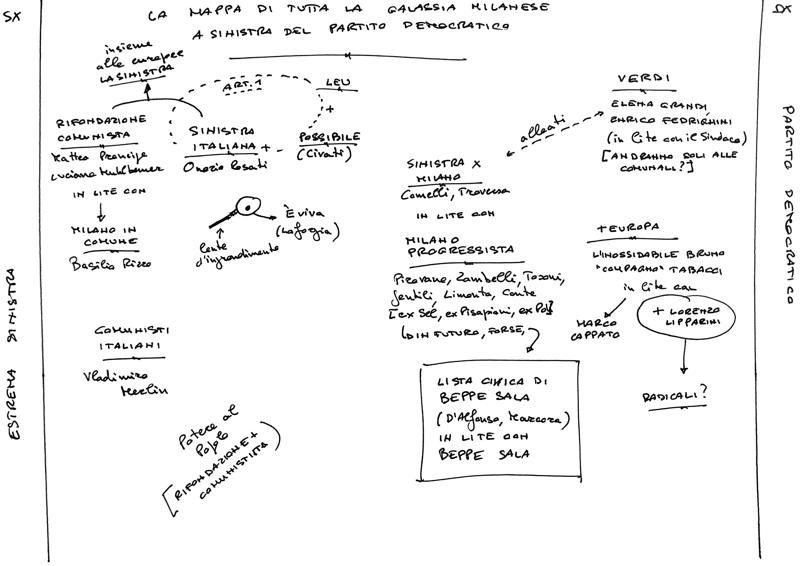 SX
LA MAPPA DI TUTTA LA GALASSIA MILANESE
A SINISTRA DEL PARTITO DEMOCRATICO
DX
insieme
alle europee
LA SINISTRA
ART. 1
LEU
+
RIFONDAZIONE
COMUNISTA
Matteo Prencipe
Luciano Muhlbauer
IN LITE CON
MILANO IN
COMUNE
Basilio Rizzo
SINISTRA
ITALIANA +
Onorio Rosati
POSSIBILE
(Civati)
lente
d'ingrandimento
È viva
(Laforgia)
COMUNISTI
ITALIANI
Vladimiro
Merlin
Potere al
Popolo
[RIFONDAZIONE +
COMUNISTI
alleati
VERDI
ELENA GRANDI,
ENRICO FEDRIGHINI
(in lite con il Sindaco)
[ANDRANNO SOLI ALLE
COMUNALI?]
SINISTRA X
MILANO
Comelli, Traversa
IN LITE CON
MILANO
PROGRESSISTA
Pirovano, Zambelli, Tosoni,
Gentili, Limonta, Conte
[ex Sel, ex Pisapiani, ex Pd]
(DIN FUTURO, FORSE,
LISTA CIVICA DI
BEPPE SALA
(D'Alfonso, Marcora)
IN LITE CON
BEPPE SALA
+EUROPA
L'INOSSIDABILE BRUNO
"COMPAGNO" TABACCI
in lite con
MARCO
CAPPATO
+ LORENZO
LIPPARINI
RADICALI?
ESTREMA SINISTRA
PARTITO DEMOCRATICO